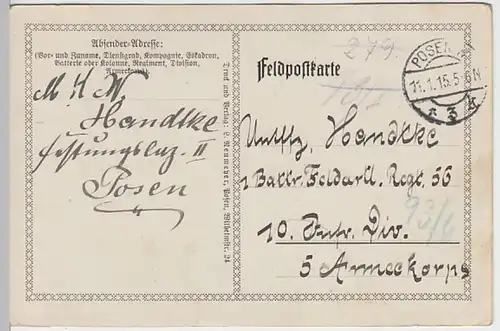 Absender-Adresse:
(Vor- und Zuname, Dienstgrad, Kompagnie, Eskadron,
Batterie oder Kolonne, Regiment, Division,
Armeekorps)
M H W
Handtke
Festungslaz. II
Posen
Druck und Verlag L. Neumeyer, Posen, Wilhelmstr. 24
279
Feldpostkarte
POSEN
11.1.15.5-6N
* 3 k
Untffz. Handtke
1 Battr. Feldartl. Regt. 56
10. Inf. Div.
5 Armeekorps